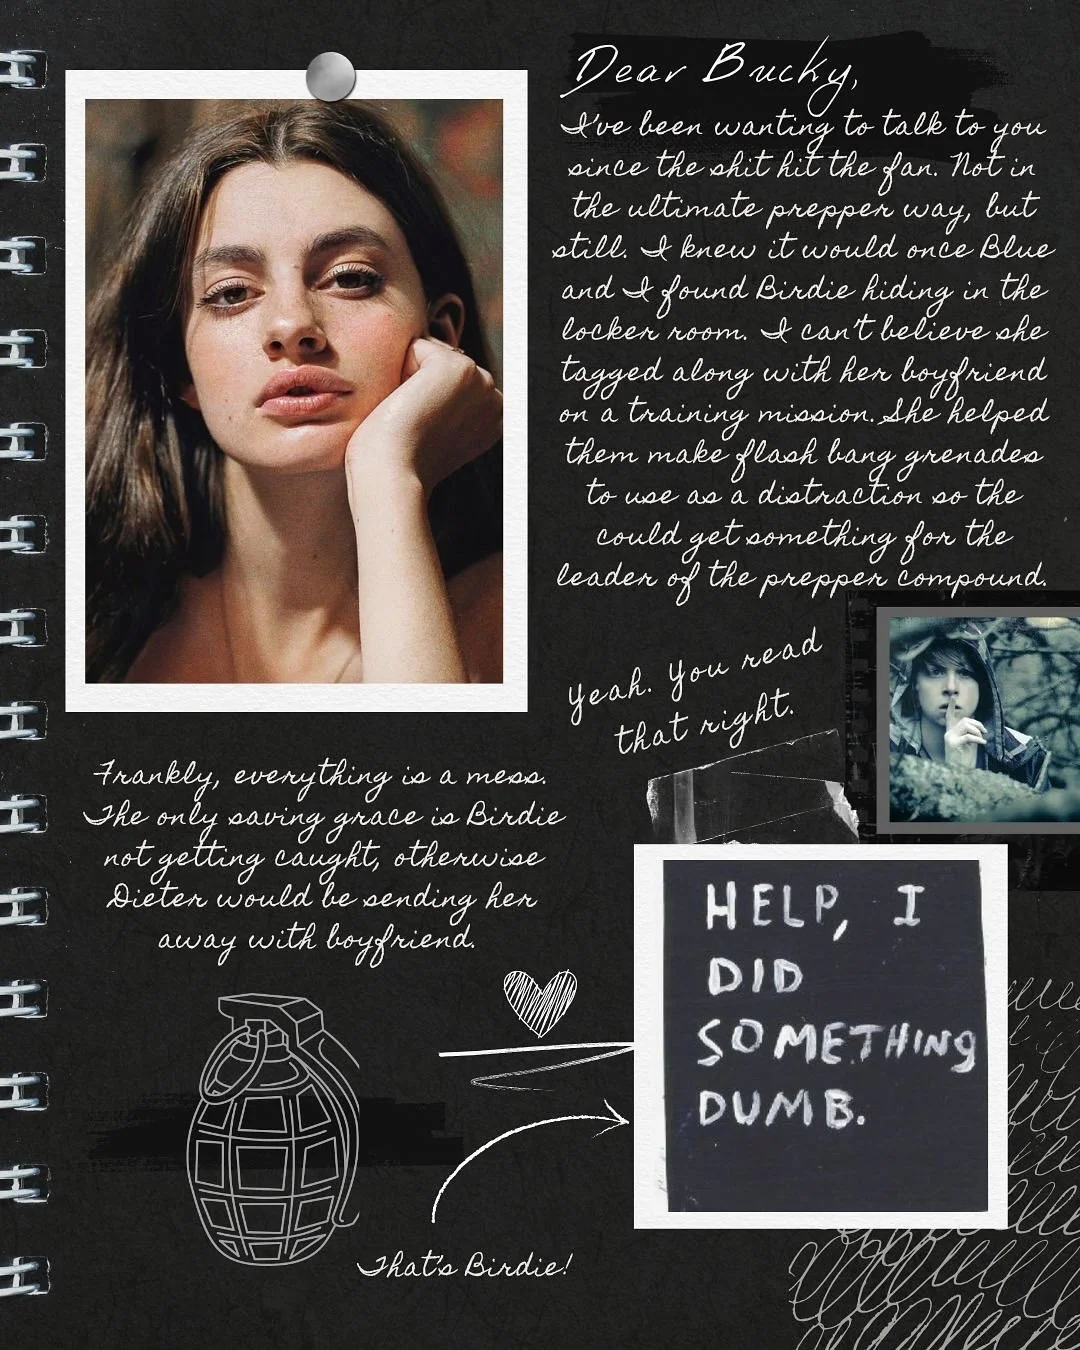 Dear Bucky,
I've been wanting to talk to you
since the shit hit the fan. Not in
the ultimate prepper way, but
still. I knew it would once Blue
and I found Birdie hiding in the
locker room. I can't believe she
tagged along with her boyfriend
on a training mission. She helped
them make flash bang grenades
to use as a distraction so the
could get something for the
leader of the prepper compound.
Yeah. You read
that right.
Frankly, everything is a mess.
The only saving grace is Birdie
not getting caught, otherwise
Dieter would be sending her
away with boyfriend.
HELP, I
DID
SOMETHING
DUMB.
That's Birdie!